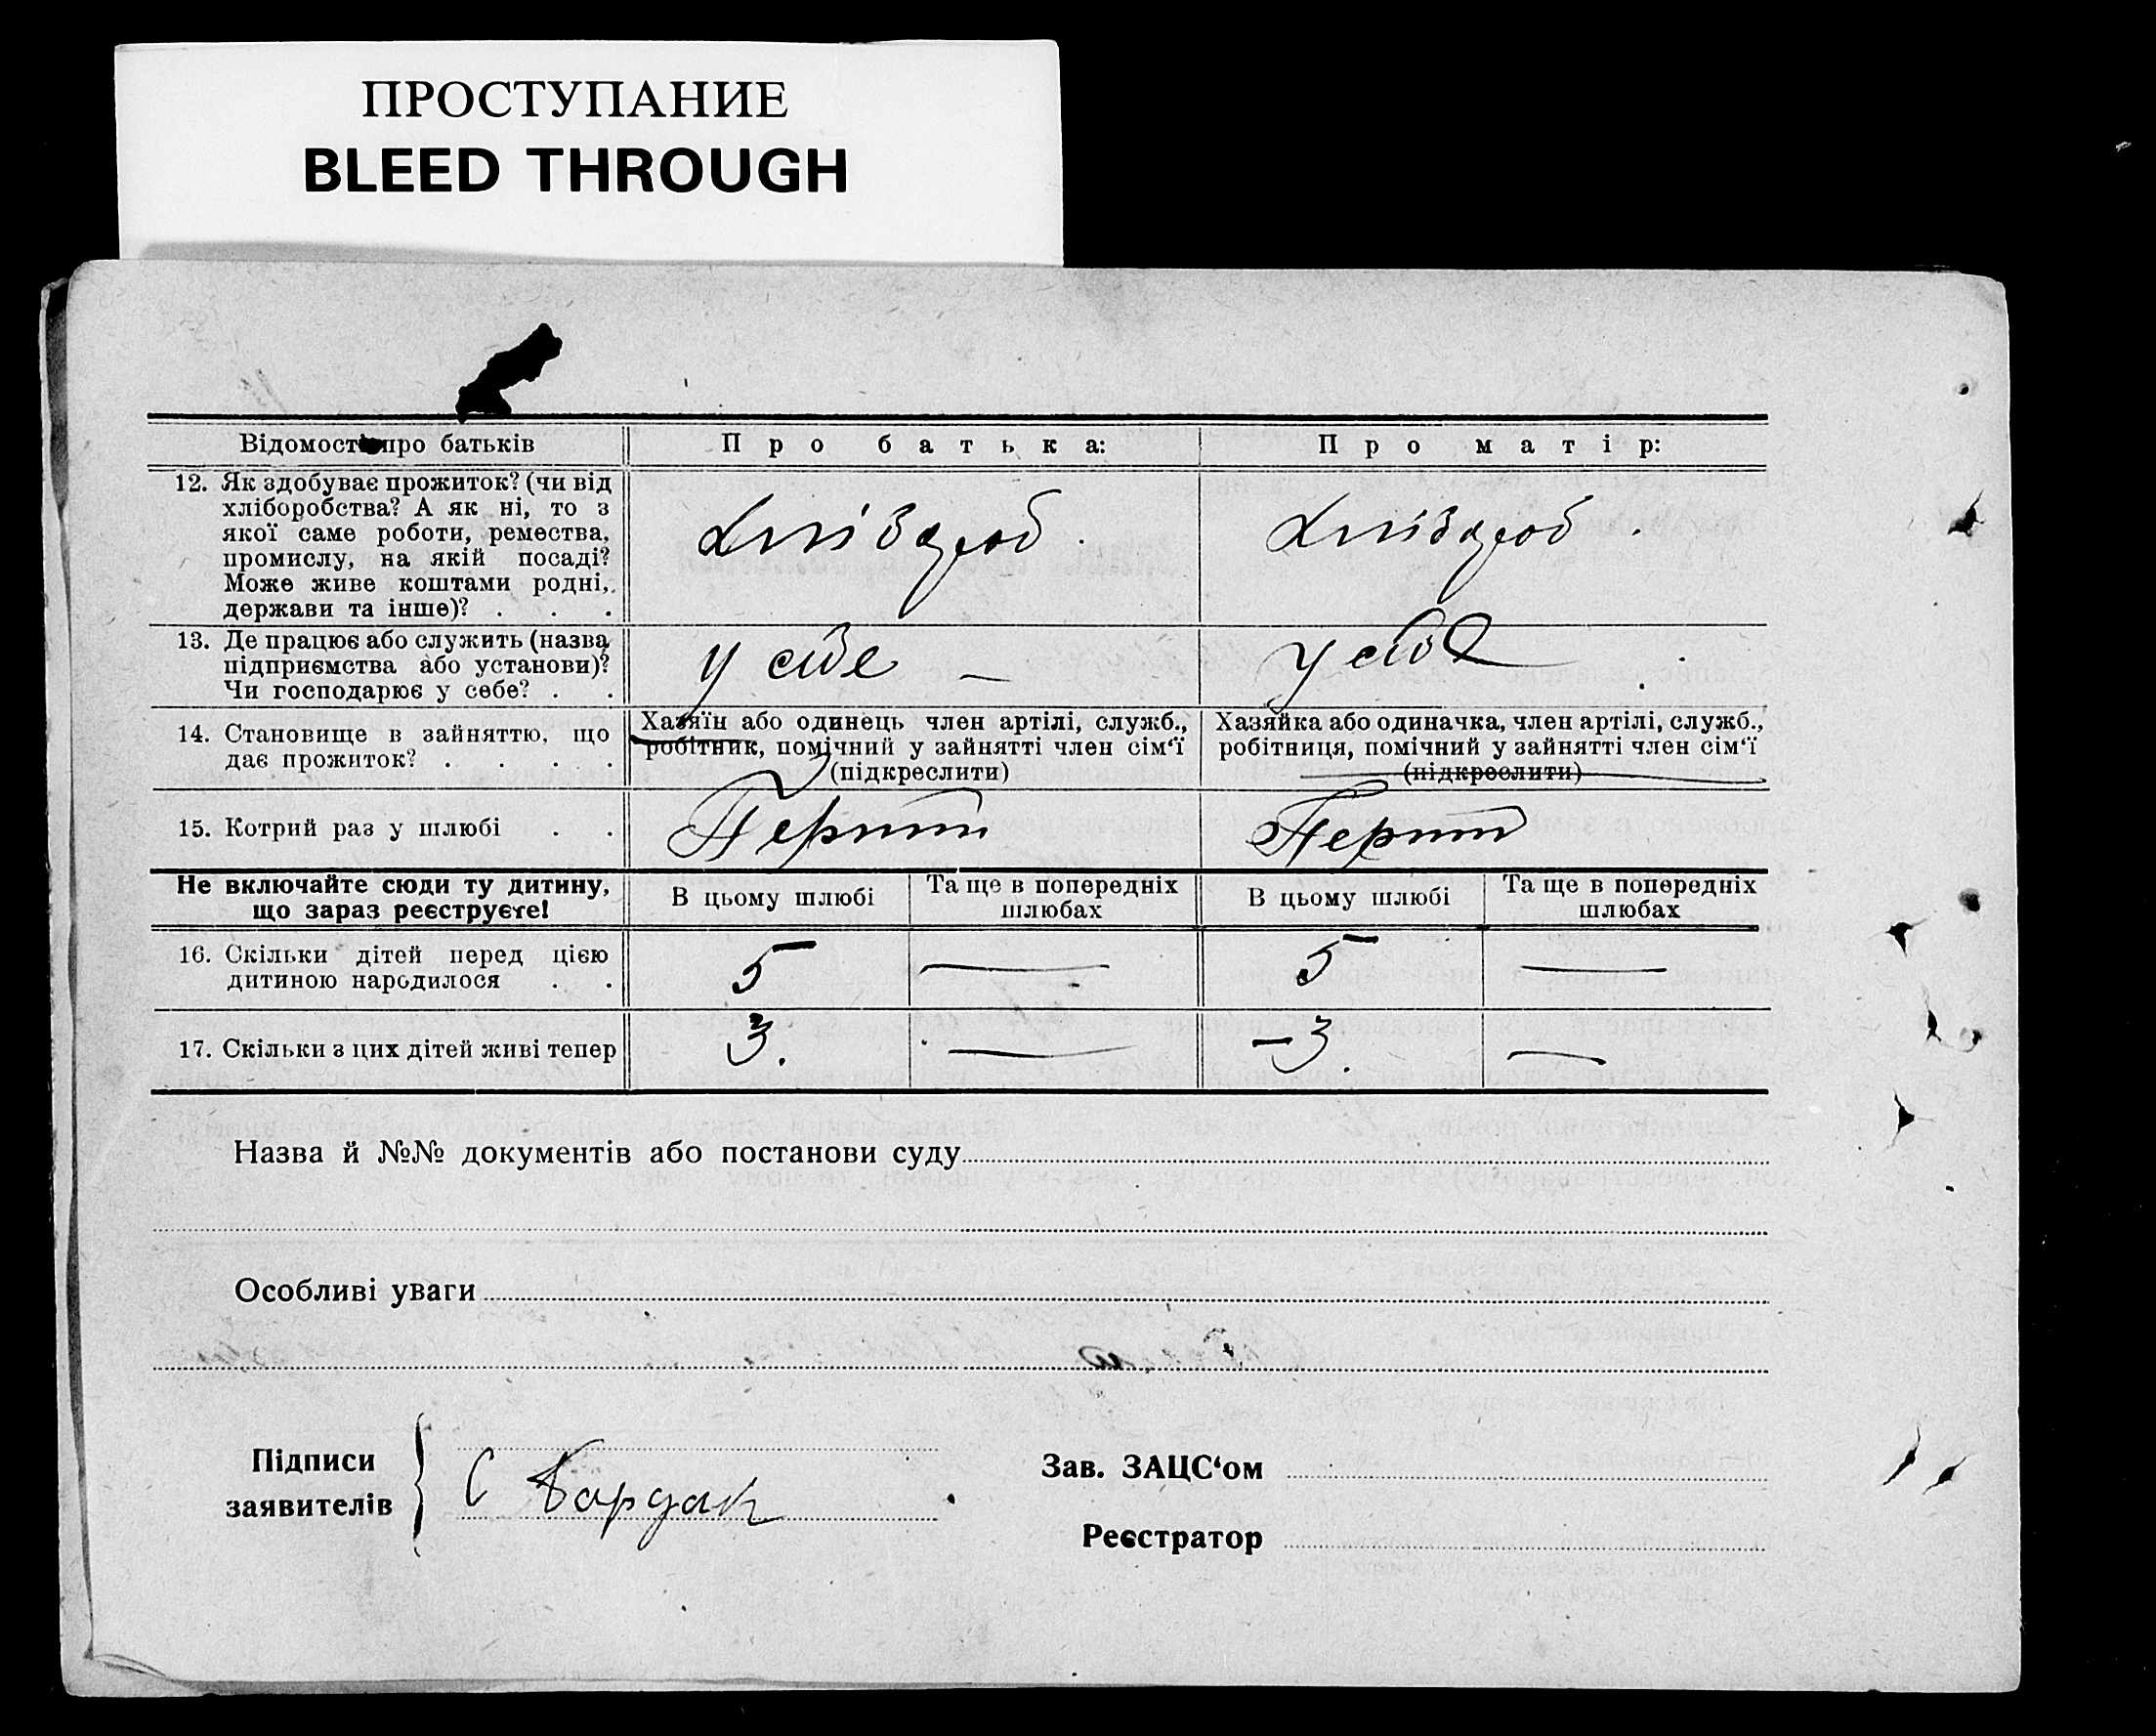 ПРОСТУПАНИЕ
BLEED THROUGH
Відомості про батьків
Про батька:
Про матір:
12. Як здобуває прожиток? (чи від
хліборобства? А як ні, то з
якої саме роботи, ремества,
промислу, на якій посаді?
Може живе коштами родні,
держави та інше)? . . .
Хлібороб.
Хлібороб.
13. Де працює або служить (назва
підприємства або установи)?
Чи господарює у себе? . .
у себе —
у себе
14. Становище в зайняттю, що
дає прожиток? . . . .
Хазяїн або одинець член артілі, служб.,
робітник, помічний у зайнятті член сім‘ї
(підкреслити)
Хазяйка або одиначка, член артілі, служб.,
робітниця, помічний у зайнятті член сім‘ї
(підкреслити)
15. Котрий раз у шлюбі . .
Перший
Перший
Не включайте сюди ту дитину,
що зараз реєструєте!
В цьому шлюбі
Та ще в попередніх
шлюбах
В цьому шлюбі
Та ще в попередніх
шлюбах
16. Скільки дітей перед цією
дитиною народилося . .
5
—
5
—
17. Скільки з цих дітей живі тепер
3.
—
–3.
—
Назва й №№ документів або постанови суду
Особливі уваги
Підписи
заявителів
С Бардак
Зав. ЗАЦС‘ом
Реєстратор